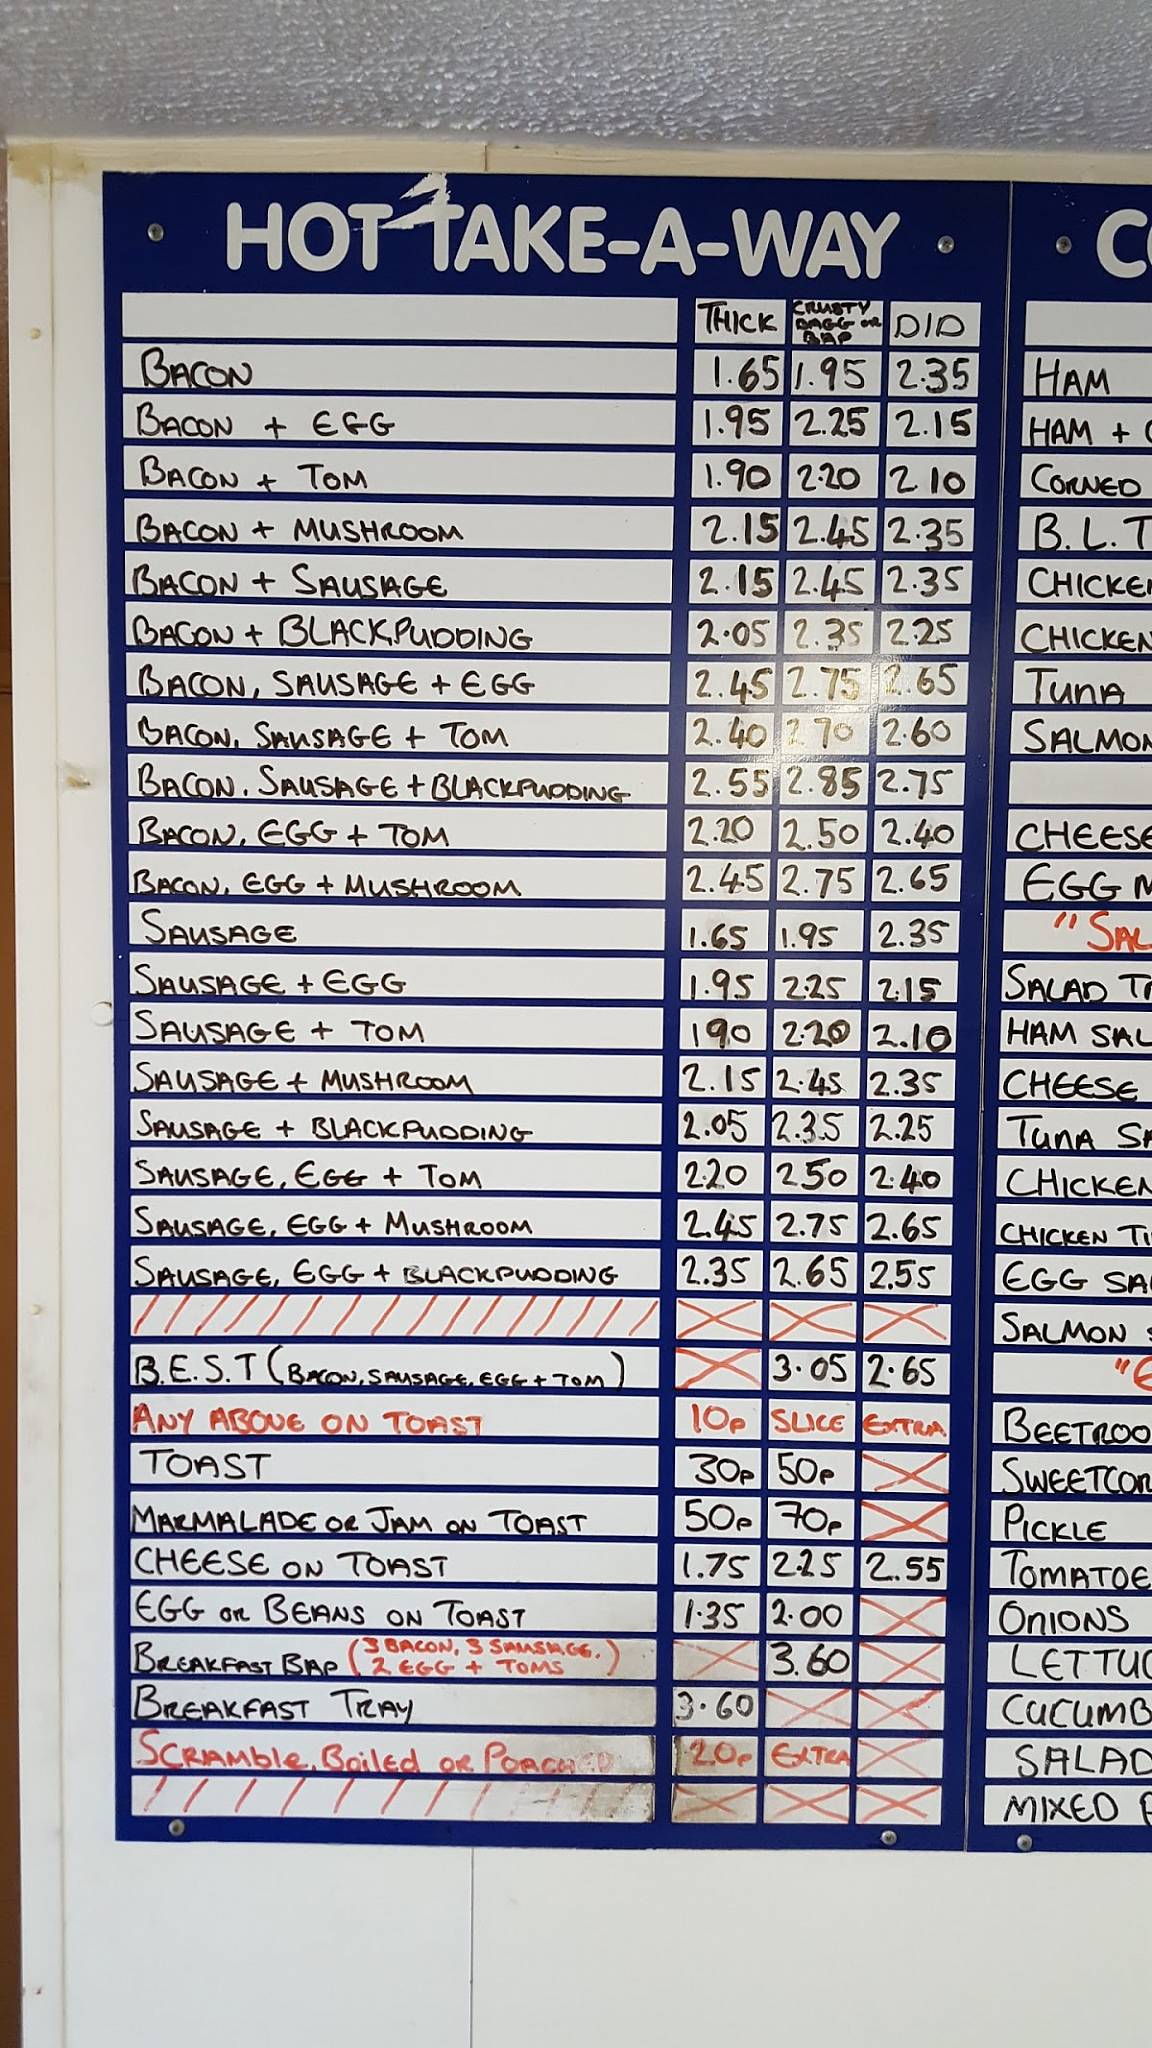 HOT TAKE-A-WAY
THICK CRUSTY BAGG OR BAP DID
BACON 1.65 1.95 2.35
BACON + EGG 1.95 2.25 2.15
BACON + TOM 1.90 2.20 2.10
BACON + MUSHROOM 2.15 2.45 2.35
BACON + SAUSAGE 2.15 2.45 2.35
BACON + BLACKPUDDING 2.05 2.35 2.25
BACON, SAUSAGE + EGG 2.45 2.75 2.65
BACON, SAUSAGE + TOM 2.40 2.70 2.60
BACON, SAUSAGE + BLACKPUDDING 2.55 2.85 2.75
BACON, EGG + TOM 2.20 2.50 2.40
BACON, EGG + MUSHROOM 2.45 2.75 2.65
SAUSAGE 1.65 1.95 2.35
SAUSAGE + EGG 1.95 2.25 2.15
SAUSAGE + TOM 190 2.20 2.10
SAUSAGE + MUSHROOM 2.15 2.45 2.35
SAUSAGE + BLACKPUDDING 2.05 2.35 2.25
SAUSAGE, EGG + TOM 2.20 2.50 2.40
SAUSAGE, EGG + MUSHROOM 2.45 2.75 2.65
SAUSAGE, EGG + BLACKPUDDING 2.35 2.65 2.55
B.E.S.T (BACON, SAUSAGE, EGG + TOM) 3.05 2.65
ANY ABOVE ON TOAST 10p SLICE EXTRA
TOAST 30p 50p
MARMALADE OR JAM ON TOAST 50p 70p
CHEESE ON TOAST 1.75 2.25 2.55
EGG OR BEANS ON TOAST 1.35 2.00
BREAKFAST BAP (3 BACON, 3 SAMSAGE, 2 EGG + TOMS) 3.60
BREAKFAST TRAY 3.60
SCRAMBLE, BOILED OR POACHED 20p EXTRA
HAM
HAM +
CORNED
B.L.T
CHICKEN
CHICKEN
TUNA
SALMON
CHEESE
EGG
SALAD
HAM SAL
CHEESE
TUNA SA
CHICKEN
CHICKEN TI
EGG SA
SALMON
BEETROO
SWEETCOR
PICKLE
TOMATOE
ONIONS
LETTUC
CUCUMB
SALAD
MIXED